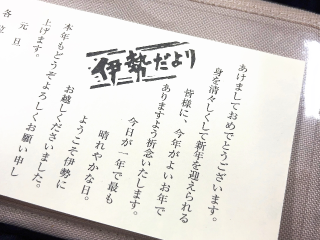 伊勢だより
あけましておめでとうございます。
身を清々しくして新年を迎えられる
皆様に、今年がよいお年で
ありますよう祈念いたします。
今日が一年で最も
晴れやかな日。
ようこそ伊勢に
お越しくださいました。
本年もどうぞよろしくお願い申し
上げます。
元旦